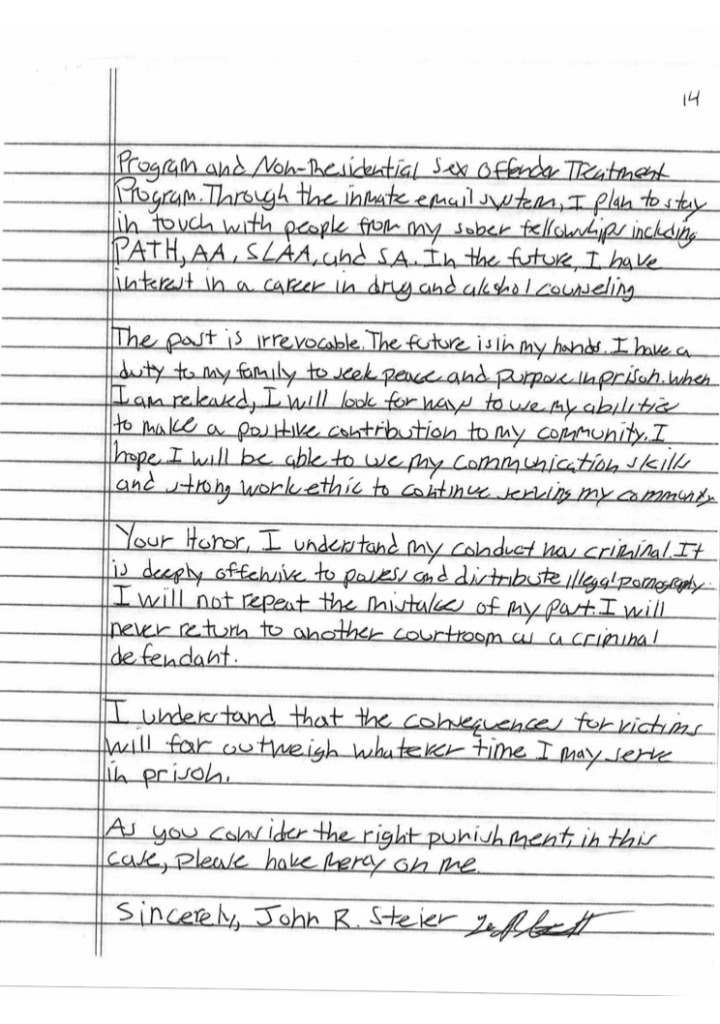 14
Program and Non-Residential Sex Offender Treatment
Program. Through the inmate email system, I plan to stay
in touch with people from my sober fellowships including
PATH, AA, SLAA, and SA. In the future, I have
interest in a career in drug and alcohol counseling
The past is irrevocable. The future is in my hands. I have a
duty to my family to seek peace and purpose in prison. When
I am released, I will look for ways to use my abilities
to make a positive contribution to my community. I
hope I will be able to use my communication skills
and strong work ethic to continue serving my community.
Your Honor, I understand my conduct was criminal. It
is deeply offensive to possess and distribute illegal pornography.
I will not repeat the mistakes of my past. I will
never return to another courtroom as a criminal
defendant.
I understand that the consequences for victims
will far outweigh whatever time I may serve
in prison.
As you consider the right punishment, in this
case, please have mercy on me.
Sincerely, John R. Steier